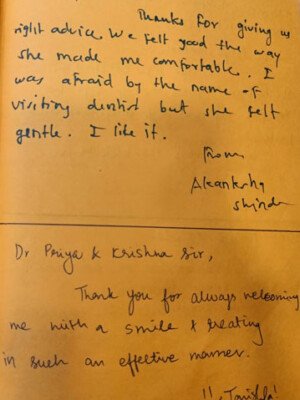 Thanks for giving us
right advice. We felt good the way
she made me comfortable. I
was afraid by the name of
visiting dentist but she felt
gentle. I like it.
From
Akanksha
Shinde
Dr Priya & Krishna Sir,
Thank you for always welcoming
me with a smile & treating
in such an effective manner.